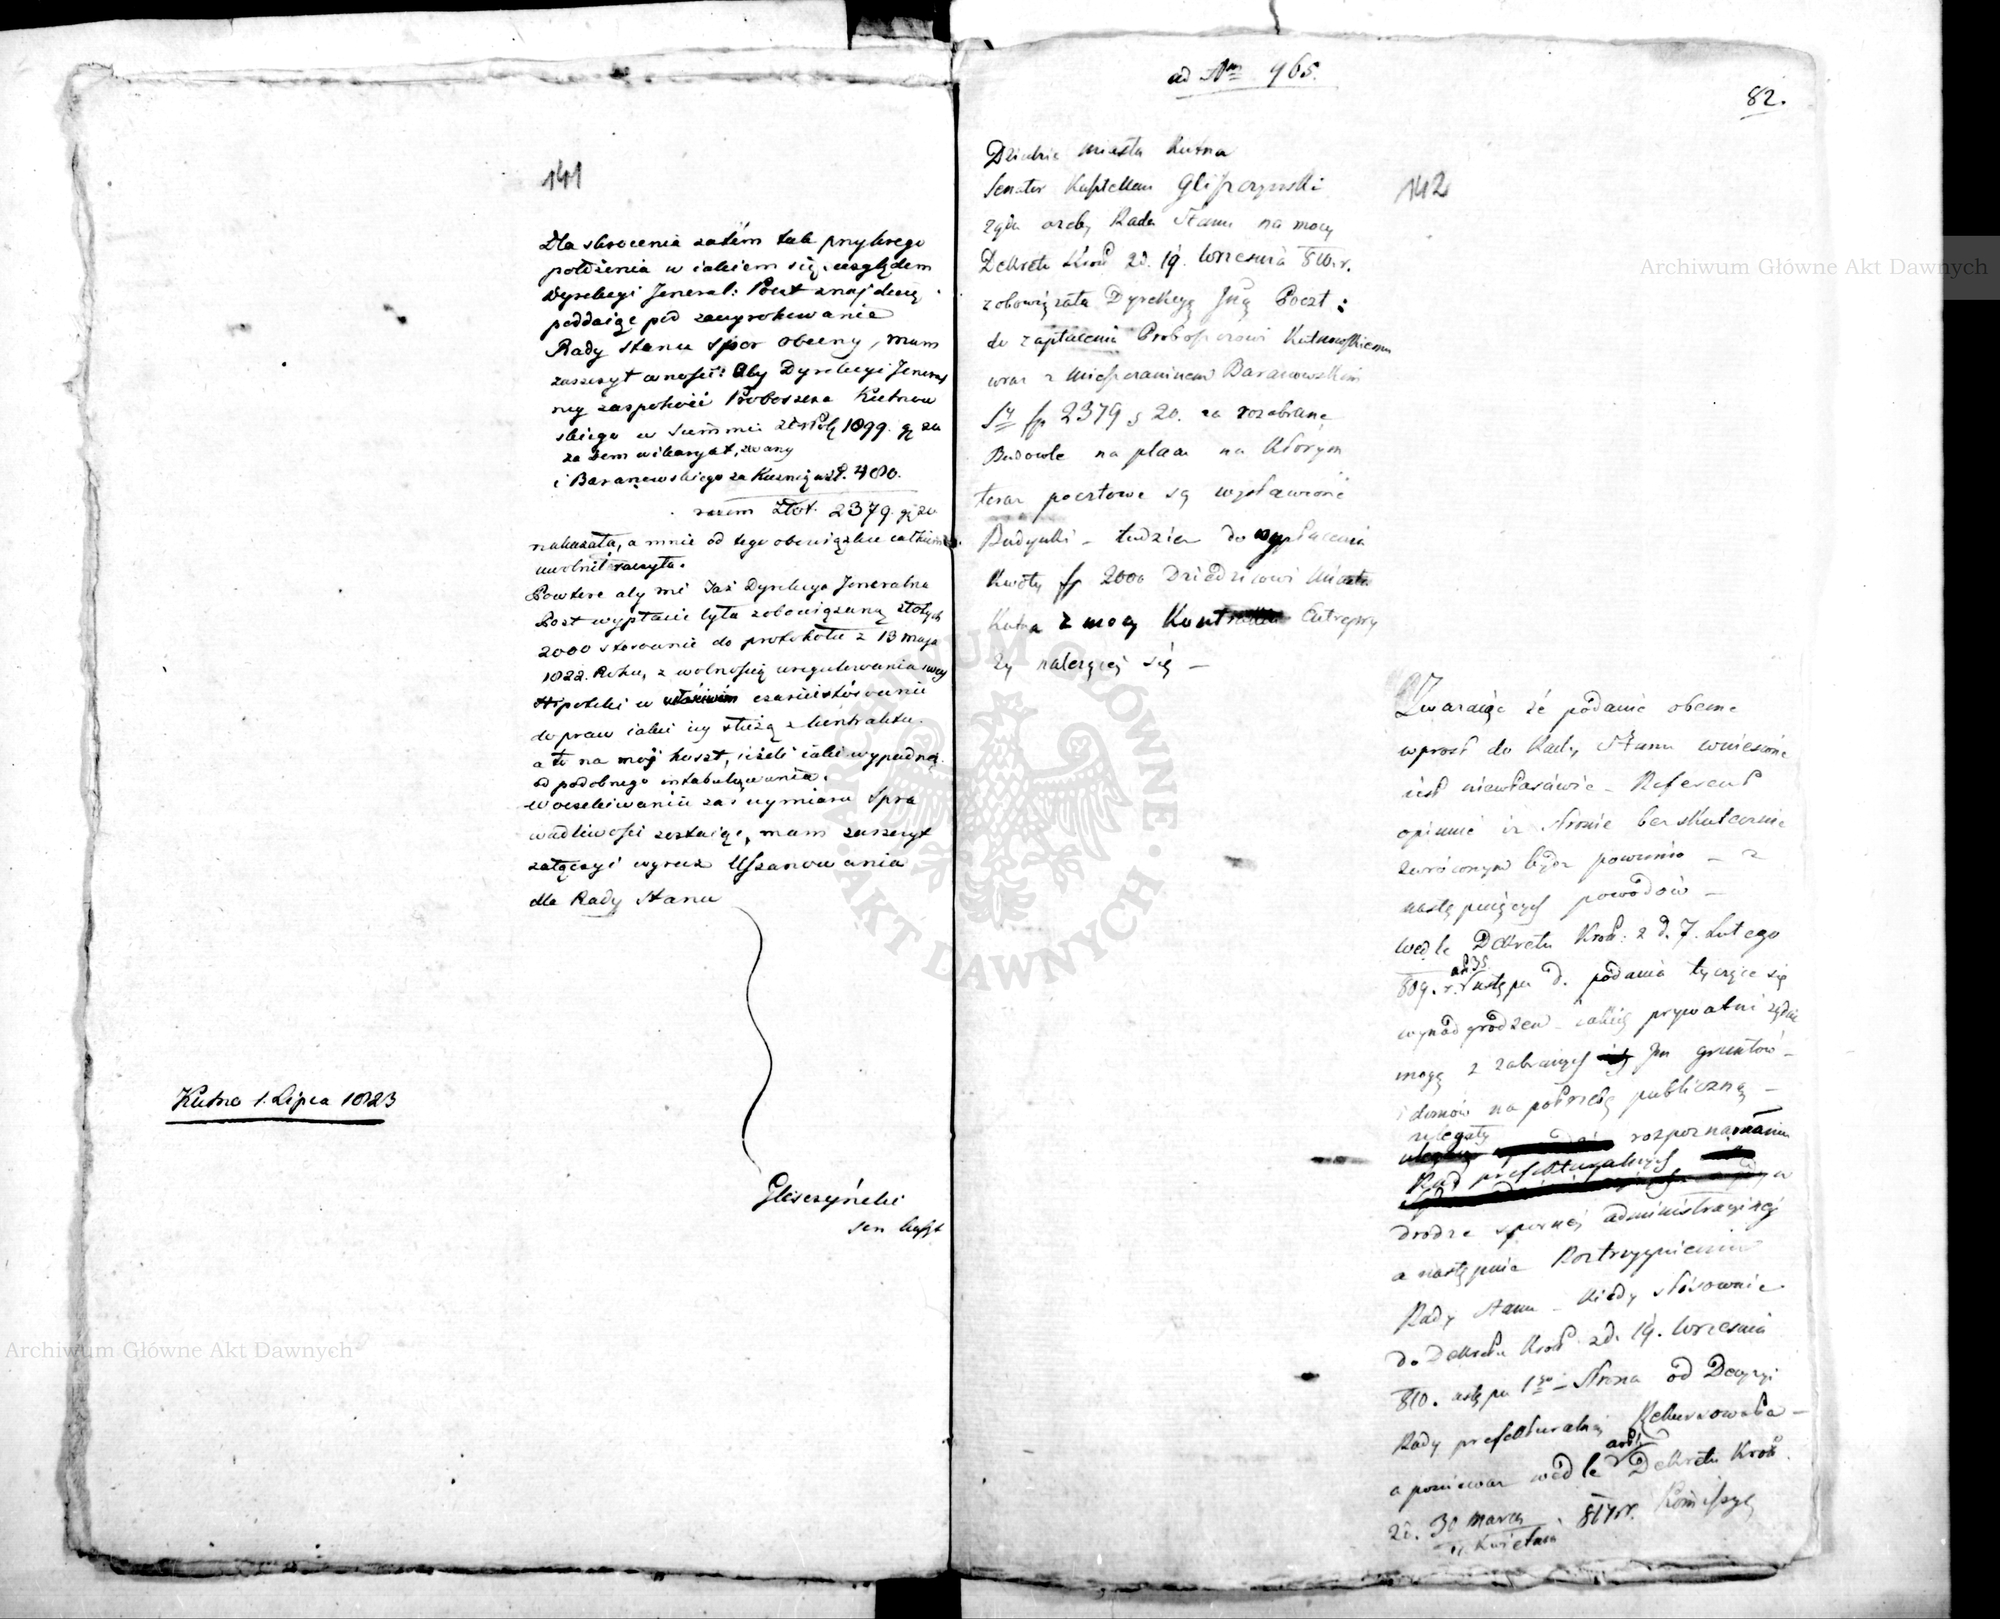 141
Dla skrocenia zatém tak przykrego
położenia w iakiem się względem
Dyrekcyi Jeneral: Poczt znajduię
poddaiąc pod zawyrokowanie
Rady Stanu spor obecny, mam
zaszczyt wnosić: Aby Dyrekcyi Jeneral
ney zaspokoić Proboszcza Kutnow
skiego w Summie 1899. g. 20
za dem wikaryat, zwany
i Baranowskiego za Kuznię zł. 480.
razem Złot. 2379. g. 20
nakazała, a mnie od tego obowiązku całkiem
uwolnić raczyła.
Powtore aby mi taż Dyrekcya Jeneralna
Poczt wypłacić była zobowiązaną złotych
2000 stosownie do protokołu z 13 maja
1822. Roku, z wolnością uregulowania swey
Hipoteki w czasie i stósownie
do praw iakie iey służą z kontraktu.
a to na moj koszt, ieżeli iaki wypadnie
od podobnego intabulowania.
W oczekiwaniu zaś wymiaru Spra
wiedliwości zostaiąc, mam zaszczyt
załączyć wyraz Uszanowania
dla Rady Stanu
Kutno 1. Lipca 1823
Gliszczyński
sen kaszt
ad Nm 965.
82.
142
Dziedzic Miasta Kutna
Senator Kasztellan Gliszczynski
żąda azeby Rada Stanu na mocy
Dekretu Król z d. 19. Wrzesnia 810. r.
zobowiązała Dyrekcyą Jną Poczt:
do zapłacenia Proboszczowi Kutnowskiemu
wraz z Mieszczaninem Baranowskim
fp 2379 g 20. za rozebrane
Budowle na placu na którym
teraz pocztowe są wystawione
Budynki – tudziez do wypłacenia
Kwoty fp 2000 Dziedzicowi Miasta
Kutna z mocy Entrepry
zy należącej się –
Zwazaiąc że podanie obecne
wprost do Rady Stanu wniesione
iest niewłasciwie – Referent
opiniuie iz Stronie bezskutecznie
zwróconym bydz powinno – z
następuiących powodów –
wedle Dekretu Król: z d. 7. Lutego
809. r. art 35 ustępu d. podania tyczące się
wynadgrodzen – iakiey prywatni ządać
mogą z zabranych Jm gruntów –
i domów na potrzebę publiczną –
ulegały rozpoznawaniu
Rad prefekturalnych w
drodze sporney administracyiney
a następnie Rozstrzygnieniu
Rady Stanu – kiedy stósownie
do Dekretu Król z d. 19. Wrzesnia
810. ustępu 1go – Strona od Decyzyi
Rady prefekturalney Rekursowała –
a poniewaz wedle art Dekretu Król
z d. 30 Marca 817 r. Komissye
11 Kwietnia
Archiwum Główne Akt Dawnych
Archiwum Główne Akt Dawnych
ARCHIWUM GŁÓWNE · AKT DAWNYCH ·